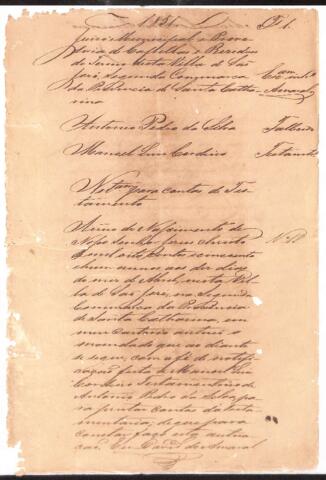 1851 Fl. 1
Juizo Municipal e Prove
doria de Capellas e Residuos
do Termo desta Villa de São
José, segunda Commarca Escram
da Provincia de Santa Catha- Amaral
rina
Antonio Pedro da Silva Fallecido
Manoel Luis Cordeiro Testamtro
para contas de Tes
tamento
Anno do Nascimento de
Nosso Senhor Jesus Christo
de mil oito centos e cincoenta
e hum annos aos dez dias
do mez de Abril, nesta Vil
la de São José, na segunda
Commarca da Provincia
de Santa Catharina, em
meu cartorio autuei o
mandado que ao diante
se segue, com a fé de notifi
cação feita a Manoel Luis
Cordeiro Testamenteiro de
Antonio Pedro da Silva pa
ra juntar contas da testa
mentaria; de que para
constar faço esta autua
ção. Eu David do Amaral